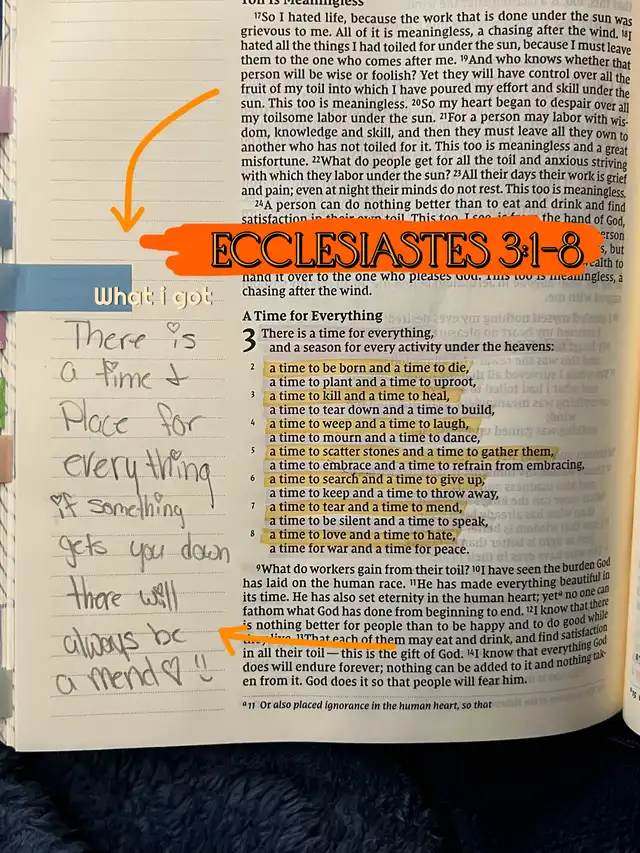 Toil Is Meaningless
17So I hated life, because the work that is done under the sun was
grievous to me. All of it is meaningless, a chasing after the wind. 18I
hated all the things I had toiled for under the sun, because I must leave
them to the one who comes after me. 19And who knows whether that
person will be wise or foolish? Yet they will have control over all the
fruit of my toil into which I have poured my effort and skill under the
sun. This too is meaningless. 20So my heart began to despair over all
my toilsome labor under the sun. 21For a person may labor with wis-
dom, knowledge and skill, and then they must leave all they own to
another who has not toiled for it. This too is meaningless and a great
misfortune. 22What do people get for all the toil and anxious striving
with which they labor under the sun? 23All their days their work is grief
and pain; even at night their minds do not rest. This too is meaningless.
24A person can do nothing better than to eat and drink and find
satisfaction in their own toil. This too, I see, is the hand of God,
ECCLESIASTES 3:1-8
hand it over to the one who pleases God. This too is meaningless, a
chasing after the wind.
A Time for Everything
3 There is a time for everything,
and a season for every activity under the heavens:
2 a time to be born and a time to die,
a time to plant and a time to uproot,
3 a time to kill and a time to heal,
a time to tear down and a time to build,
4 a time to weep and a time to laugh,
a time to mourn and a time to dance,
5 a time to scatter stones and a time to gather them,
a time to embrace and a time to refrain from embracing,
6 a time to search and a time to give up,
a time to keep and a time to throw away,
7 a time to tear and a time to mend,
a time to be silent and a time to speak,
8 a time to love and a time to hate,
a time for war and a time for peace.
9What do workers gain from their toil? 10I have seen the burden God
has laid on the human race. 11He has made everything beautiful in
its time. He has also set eternity in the human heart; yeta no one can
fathom what God has done from beginning to end. 12I know that there
is nothing better for people than to be happy and to do good while
live. 13That each of them may eat and drink, and find satisfaction
in all their toil — this is the gift of God. 14I know that everything God
does will endure forever; nothing can be added to it and nothing tak-
en from it. God does it so that people will fear him.
a 11 Or also placed ignorance in the human heart, so that
What i got
There is
a time &
Place for
everything
if something
gets you down
there will
always be
a mend♡ :)